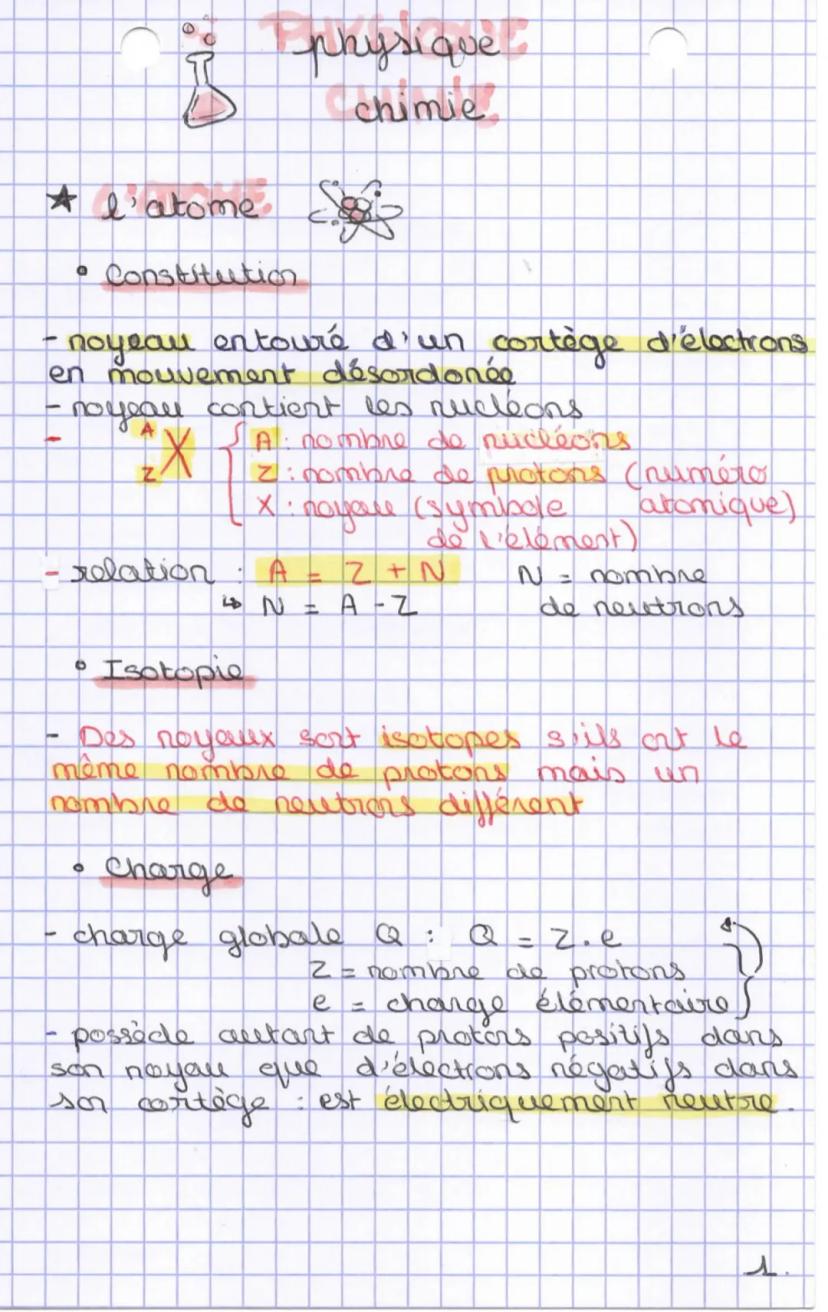 PHYSIQUE
physique
CHIMIE
chimie
★ l'atome
• Constitution
- noyeau entouré d'un cortège d'électrons
en mouvement désordonée
- noyeau contient les nucléons
- A Z X { A : nombre de nucléons
Z : nombre de protons (numéro
X : noyau (symbole atomique)
de l'élément)
- relation : A = Z + N N = nombre
↳ N = A - Z de neutrons
• Isotopie
- Des noyaux sont isotopes s'ils ont le
même nombre de protons mais un
nombre de neutrons différent
• Charge
- charge globale Q : Q = Z.e
Z = nombre de protons
e = charge élémentaire
- possède autant de protons positifs dans
son noyau que d'électrons négatifs dans
son cortège : est électriquement neutre.
1.